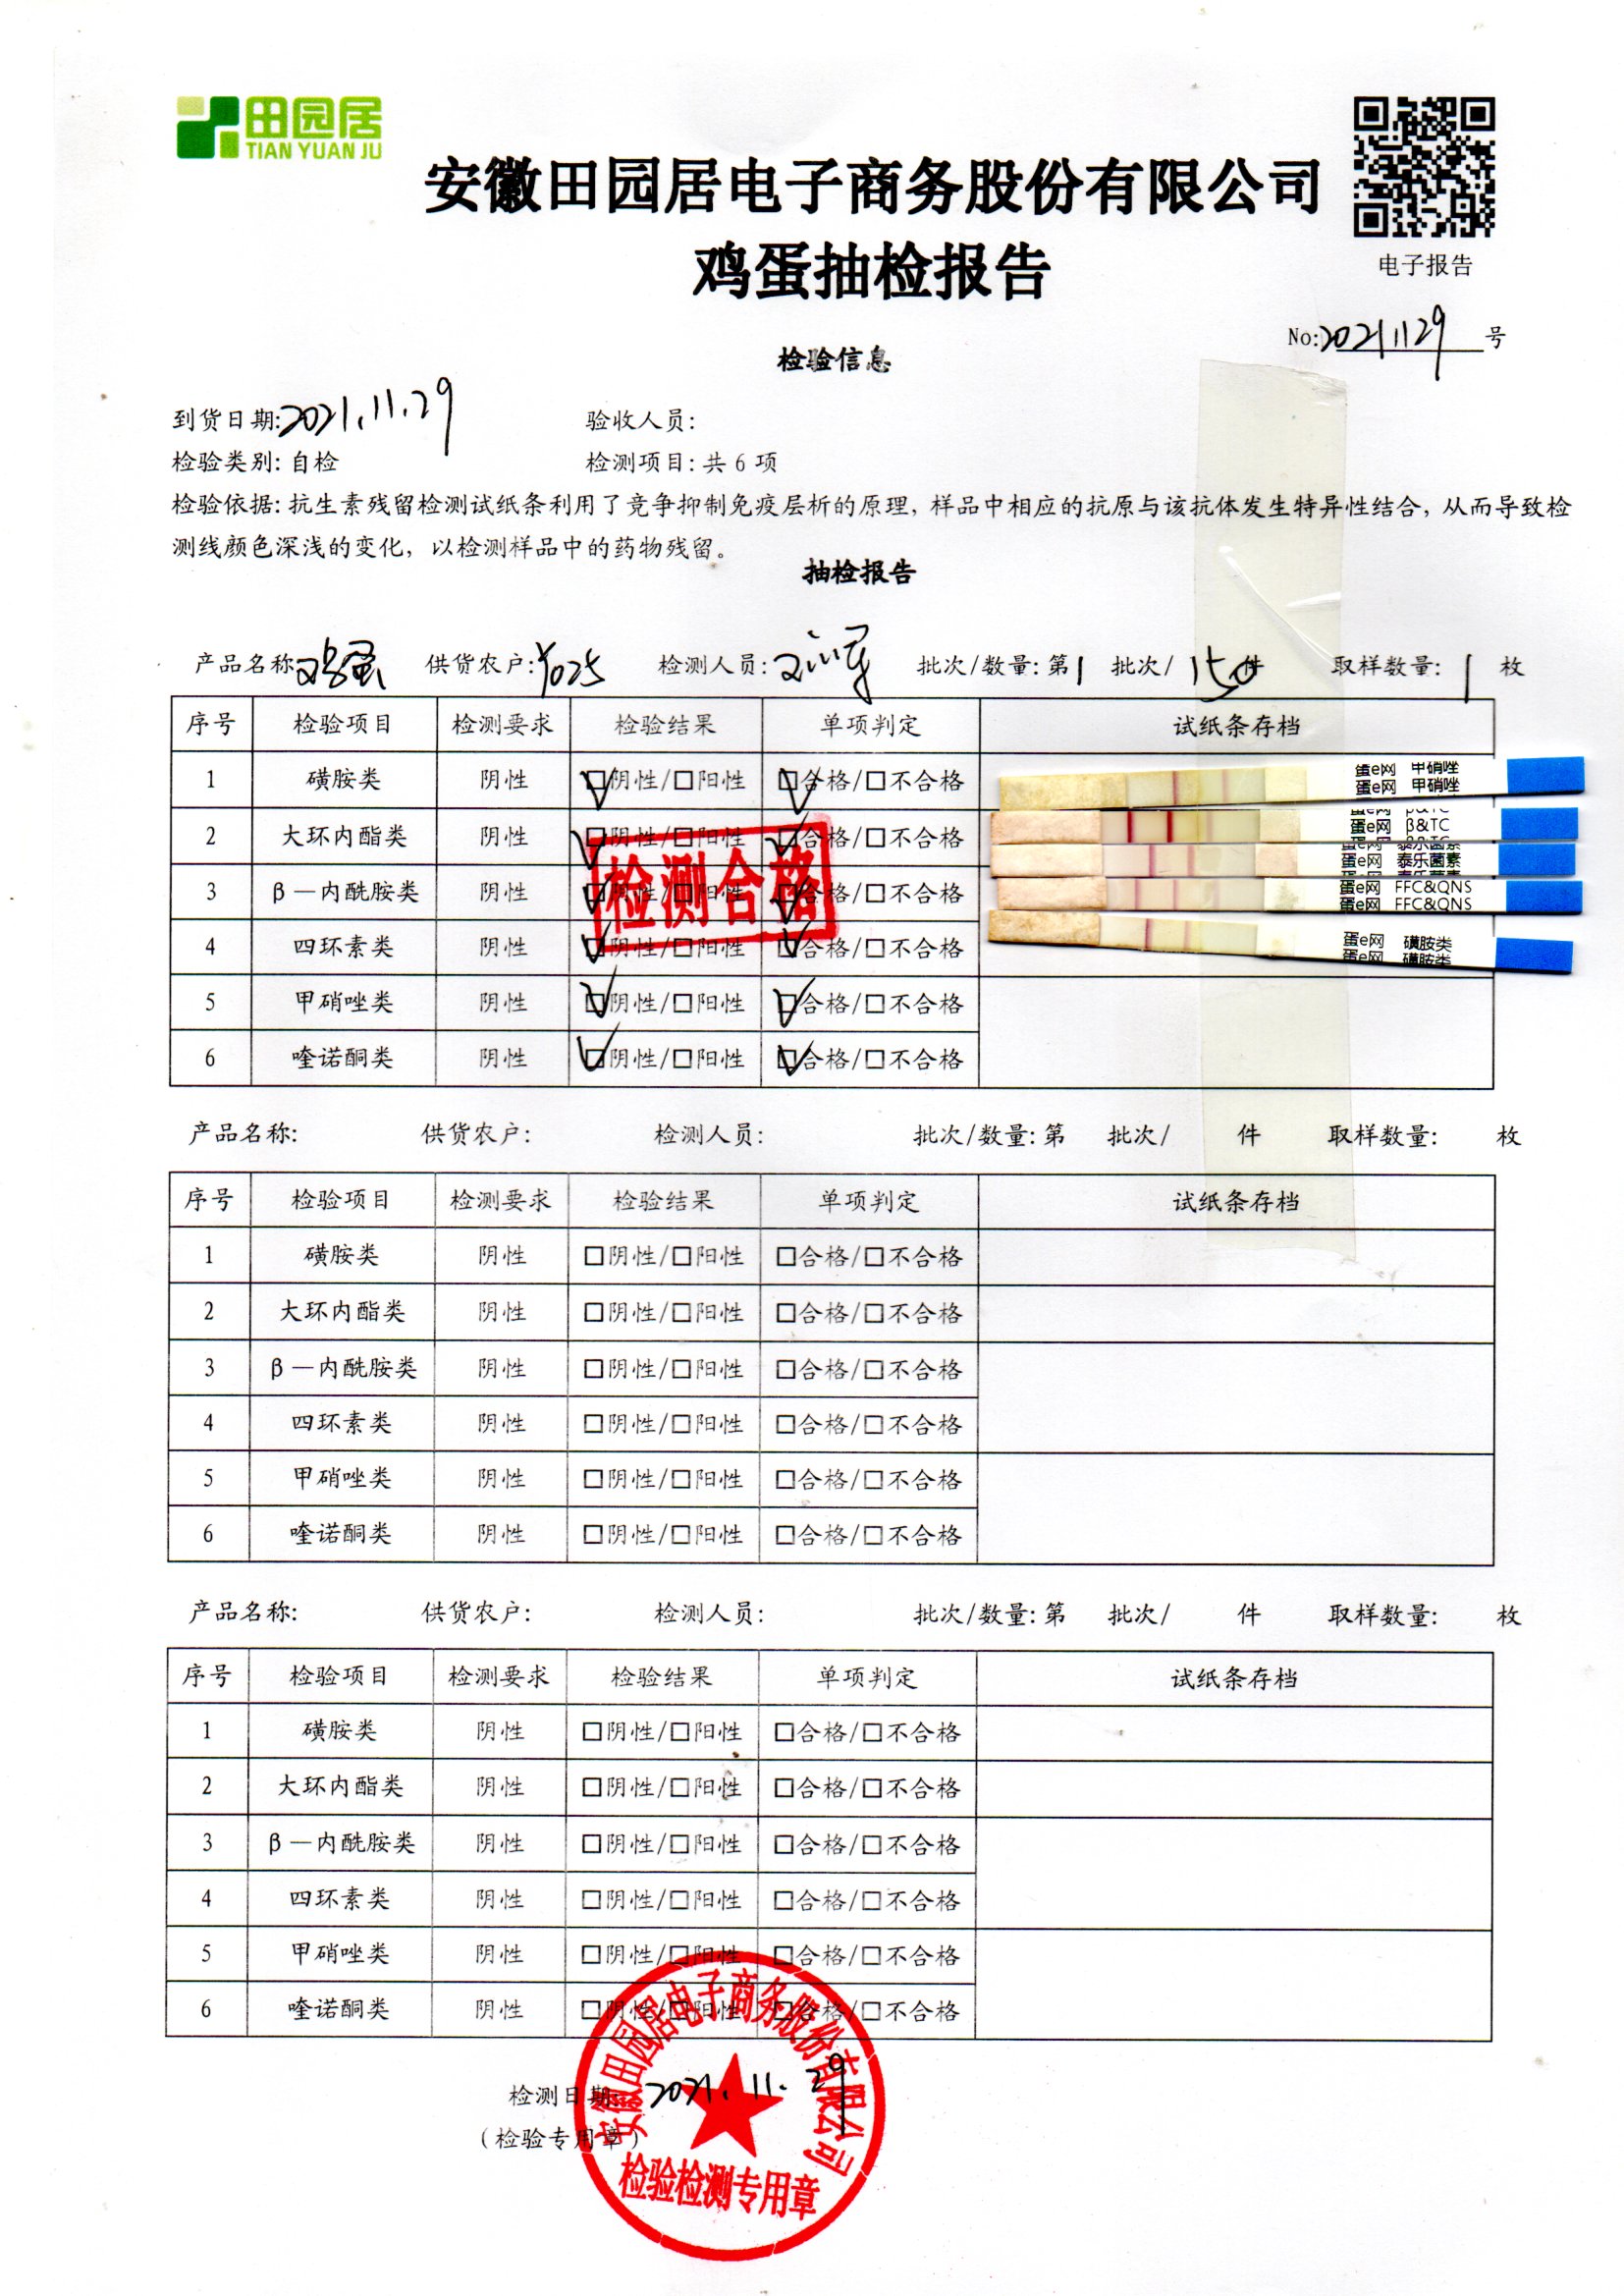 田园居
TIAN YUAN JU
安徽田园居电子商务股份有限公司
鸡蛋抽检报告
电子报告
No:20211129号
检验信息
到货日期:2021.11.29 验收人员:
检验类别:自检 检测项目:共6项
检验依据:抗生素残留检测试纸条利用了竞争抑制免疫层析的原理,样品中相应的抗原与该抗体发生特异性结合,从而导致检
测线颜色深浅的变化,以检测样品中的药物残留。
抽检报告
产品名称:鸡蛋 供货农户: 检测人员: 批次/数量:第1批次/150件 取样数量:1枚
序号 检验项目 检测要求 检验结果 单项判定 试纸条存档
1 磺胺类 阴性 ☑阴性/□阳性 ☑合格/□不合格
2 大环内酯类 阴性 ☑阴性/□阳性 ☑合格/□不合格
3 β—内酰胺类 阴性 ☑阴性/□阳性 ☑合格/□不合格
4 四环素类 阴性 ☑阴性/□阳性 ☑合格/□不合格
5 甲硝唑类 阴性 ☑阴性/□阳性 ☑合格/□不合格
6 喹诺酮类 阴性 ☑阴性/□阳性 ☑合格/□不合格
检测合格
蛋e网 甲硝唑
蛋e网 甲硝唑
蛋e网 β&TC
蛋e网 泰乐菌素
蛋e网 FFC&QNS
蛋e网 FFC&QNS
蛋e网 磺胺类
蛋e网 磺胺类
产品名称: 供货农户: 检测人员: 批次/数量:第 批次/ 件 取样数量: 枚
序号 检验项目 检测要求 检验结果 单项判定 试纸条存档
1 磺胺类 阴性 □阴性/□阳性 □合格/□不合格
2 大环内酯类 阴性 □阴性/□阳性 □合格/□不合格
3 β—内酰胺类 阴性 □阴性/□阳性 □合格/□不合格
4 四环素类 阴性 □阴性/□阳性 □合格/□不合格
5 甲硝唑类 阴性 □阴性/□阳性 □合格/□不合格
6 喹诺酮类 阴性 □阴性/□阳性 □合格/□不合格
产品名称: 供货农户: 检测人员: 批次/数量:第 批次/ 件 取样数量: 枚
序号 检验项目 检测要求 检验结果 单项判定 试纸条存档
1 磺胺类 阴性 □阴性/□阳性 □合格/□不合格
2 大环内酯类 阴性 □阴性/□阳性 □合格/□不合格
3 β—内酰胺类 阴性 □阴性/□阳性 □合格/□不合格
4 四环素类 阴性 □阴性/□阳性 □合格/□不合格
5 甲硝唑类 阴性 □阴性/□阳性 □合格/□不合格
6 喹诺酮类 阴性 □阴性/□阳性 □合格/□不合格
检测日期:2021.11.29
(检验专用章)
安徽田园居电子商务股份有限公司
检验检测专用章